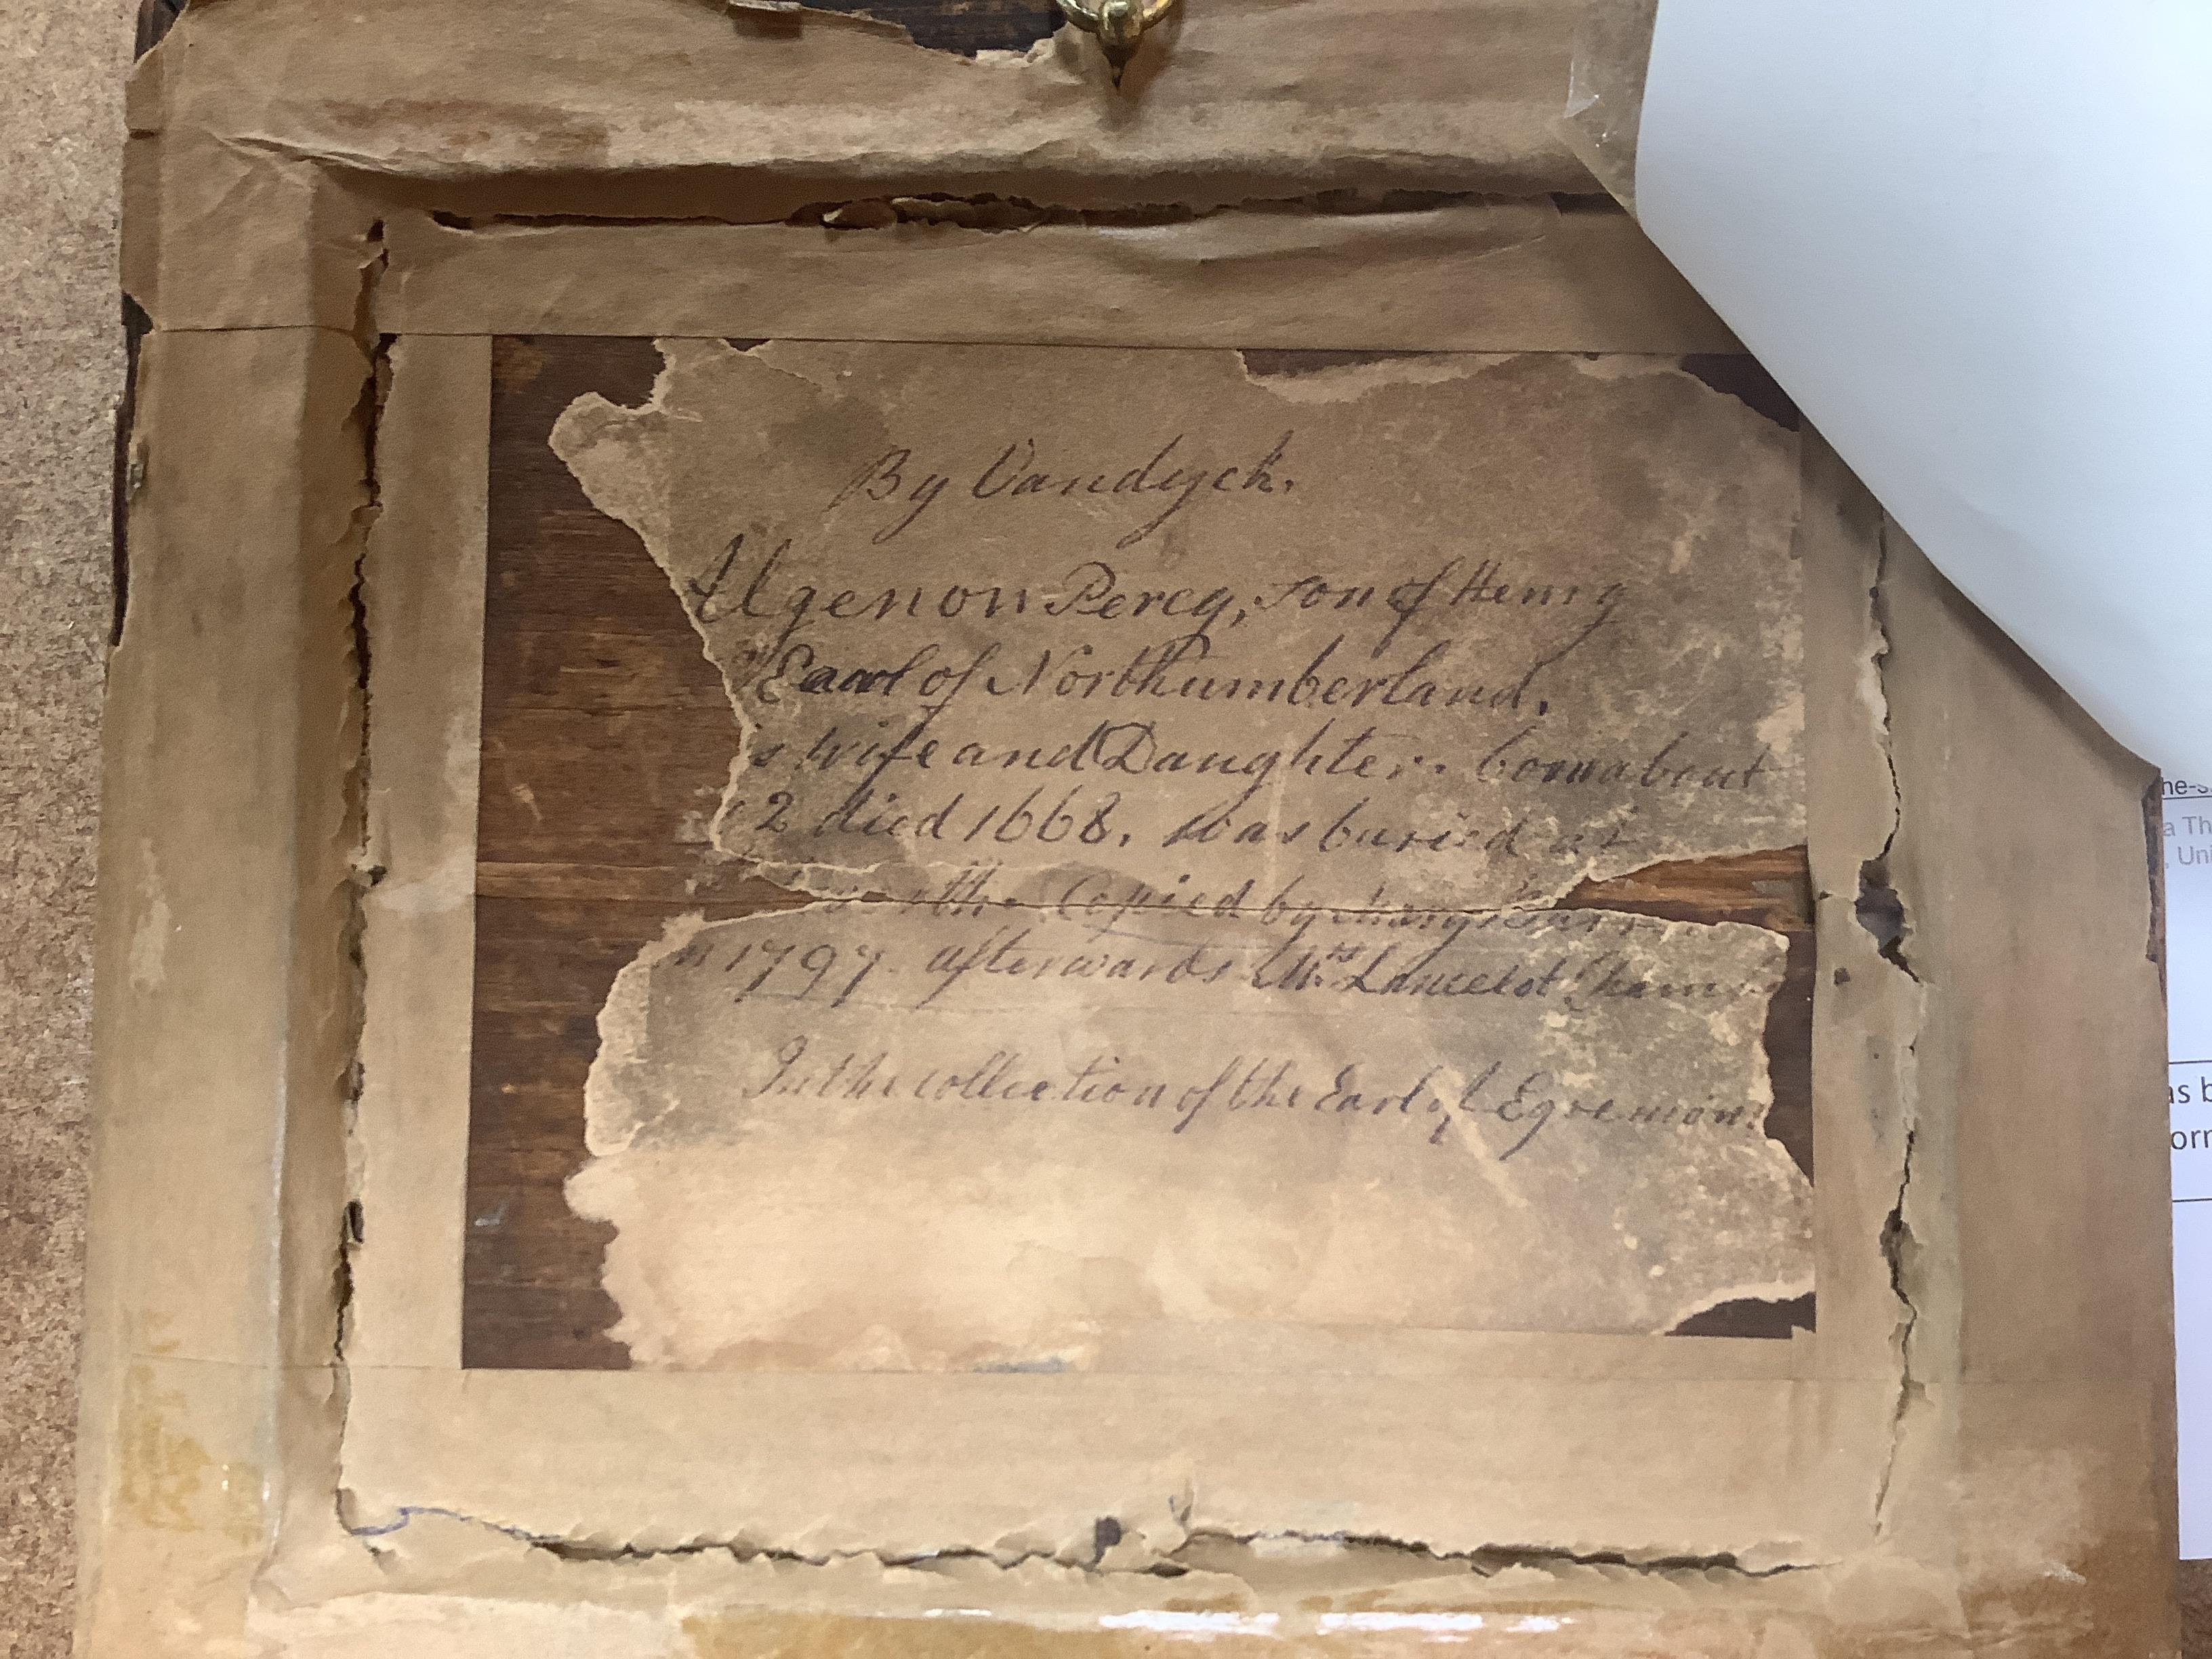 By Vandyck.
Algenon Percy, son of Henry
Earl of Northumberland.
s wife and Daughter. born about
2 died 1668. was buried at
worth. Copied by Mary
n 1797. afterwards Mrs Lancelot
In the collection of the Earl of Egremont
he-s
a Th
, Uni
as b
orn